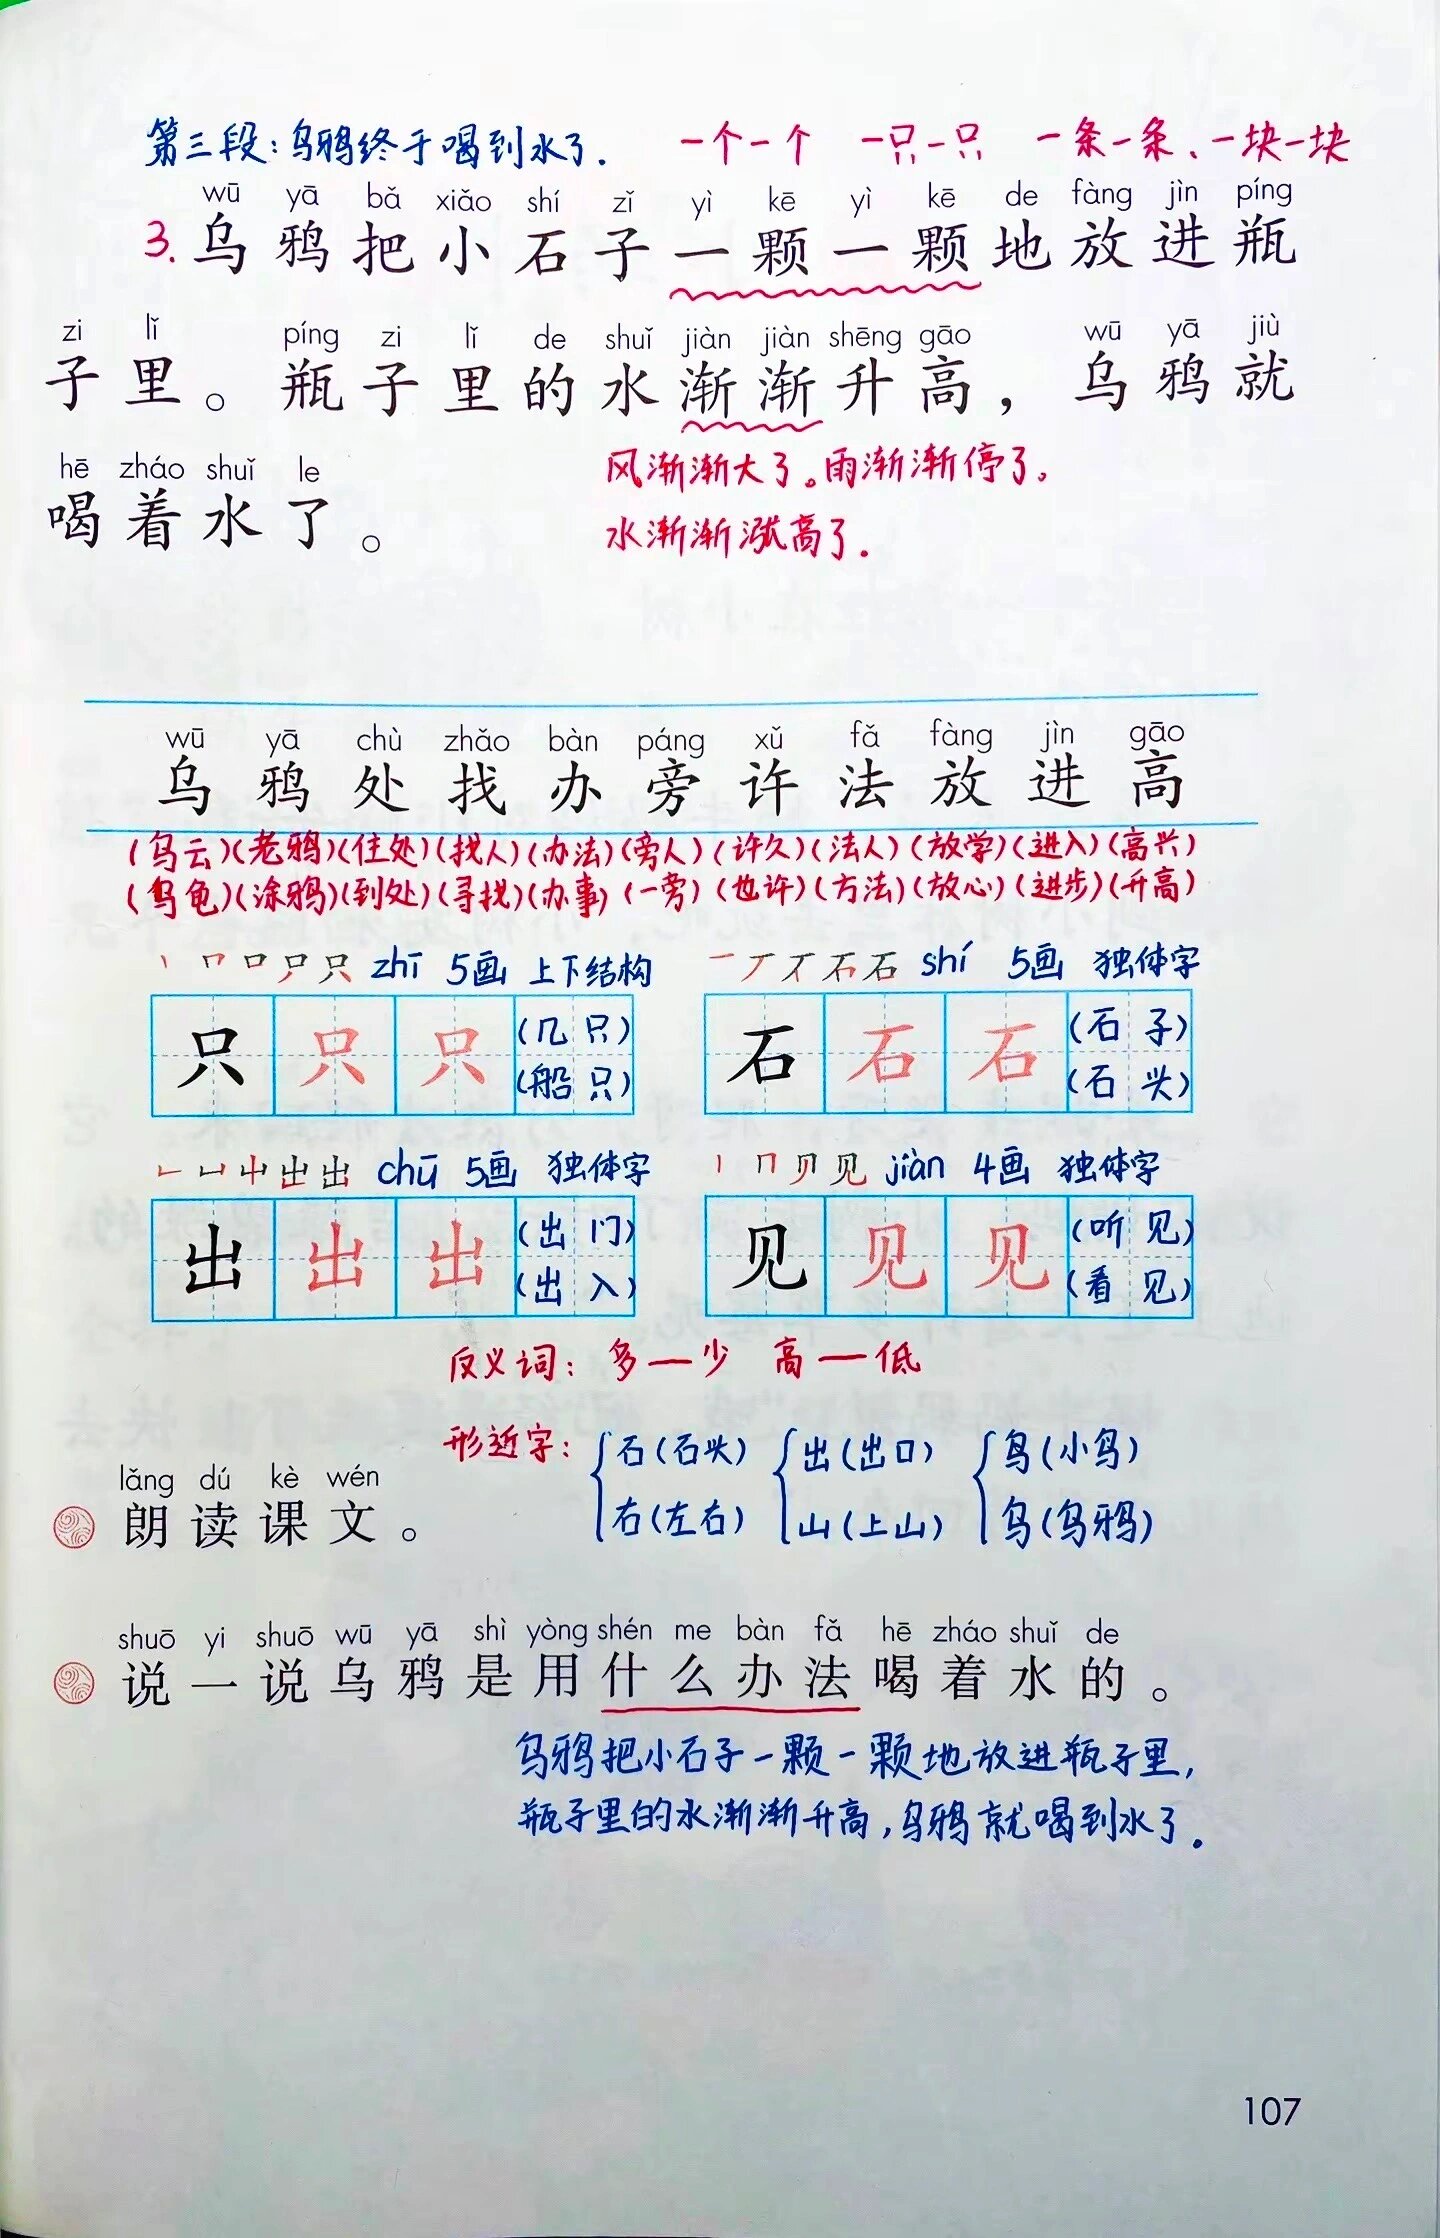 第三段:乌鸦终于喝到水了. 一个一个 一只一只 一条一条、一块一块
wū yā bǎ xiǎo shí zǐ yì kē yì kē de fàng jìn píng
3.乌鸦把小石子一颗一颗地放进瓶
zi lǐ píng zi lǐ de shuǐ jiàn jiàn shēng gāo wū yā jiù
子里。瓶子里的水渐渐升高，乌鸦就
hē zháo shuǐ le
喝着水了。
风渐渐大了。雨渐渐停了。
水渐渐涨高了.
wū yā chù zhǎo bàn páng xǔ fǎ fàng jìn gāo
乌 鸦 处 找 办 旁 许 法 放 进 高
(乌云)(老鸦)(住处)(找人)(办法)(旁人)(许久)(法人)(放学)(进入)(高兴)
(乌龟)(涂鸦)(到处)(寻找)(办事)(一旁)(也许)(方法)(放心)(进步)(升高)
zhī 5画 上下结构 shí 5画 独体字
只 只 只 (几只) 石 石 石 (石子)
(船只) (石头)
chū 5画 独体字 jiàn 4画 独体字
出 出 出 (出门) 见 见 见 (听见)
(出入) (看见)
反义词: 多—少 高—低
形近字: 石(石头) 出(出口) 鸟(小鸟)
右(左右) 山(上山) 乌(乌鸦)
lǎng dú kè wén
朗读课文。
shuō yi shuō wū yā shì yòng shén me bàn fǎ hē zháo shuǐ de
说一说乌鸦是用什么办法喝着水的。
乌鸦把小石子一颗一颗地放进瓶子里,
瓶子里的水渐渐升高,乌鸦就喝到水了.
107